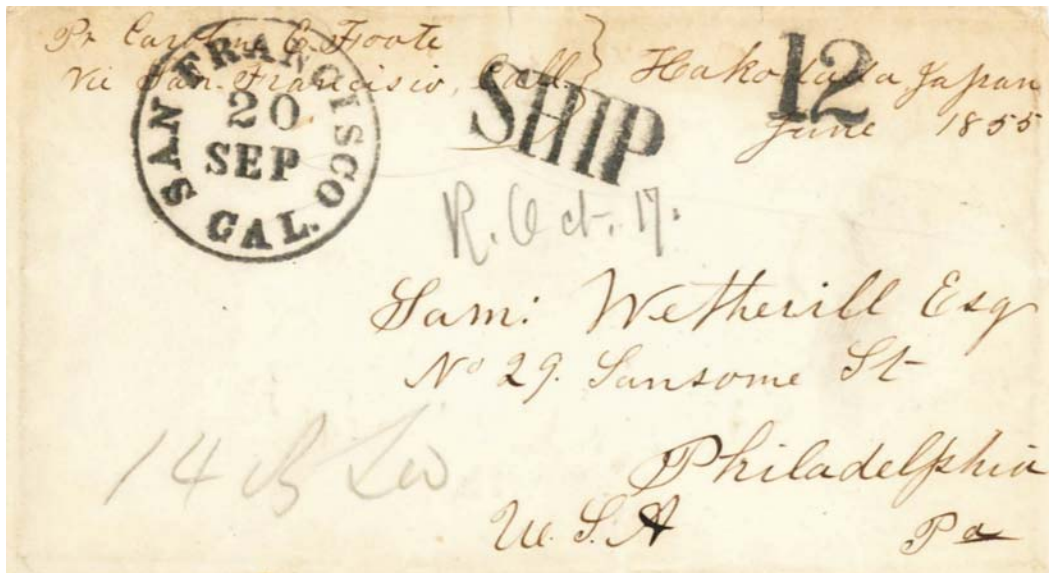 Pr Caroline E. Foote
Via San Francisco, Call.
Hakodada, Japan
June 1855
SAN FRANCISCO
20
SEP
CAL.
SHIP
12
R. Oct. 17.
Sam: Wetherill Esq
No 29. Sansome St
Philadelphia
U.S.A Pa
14